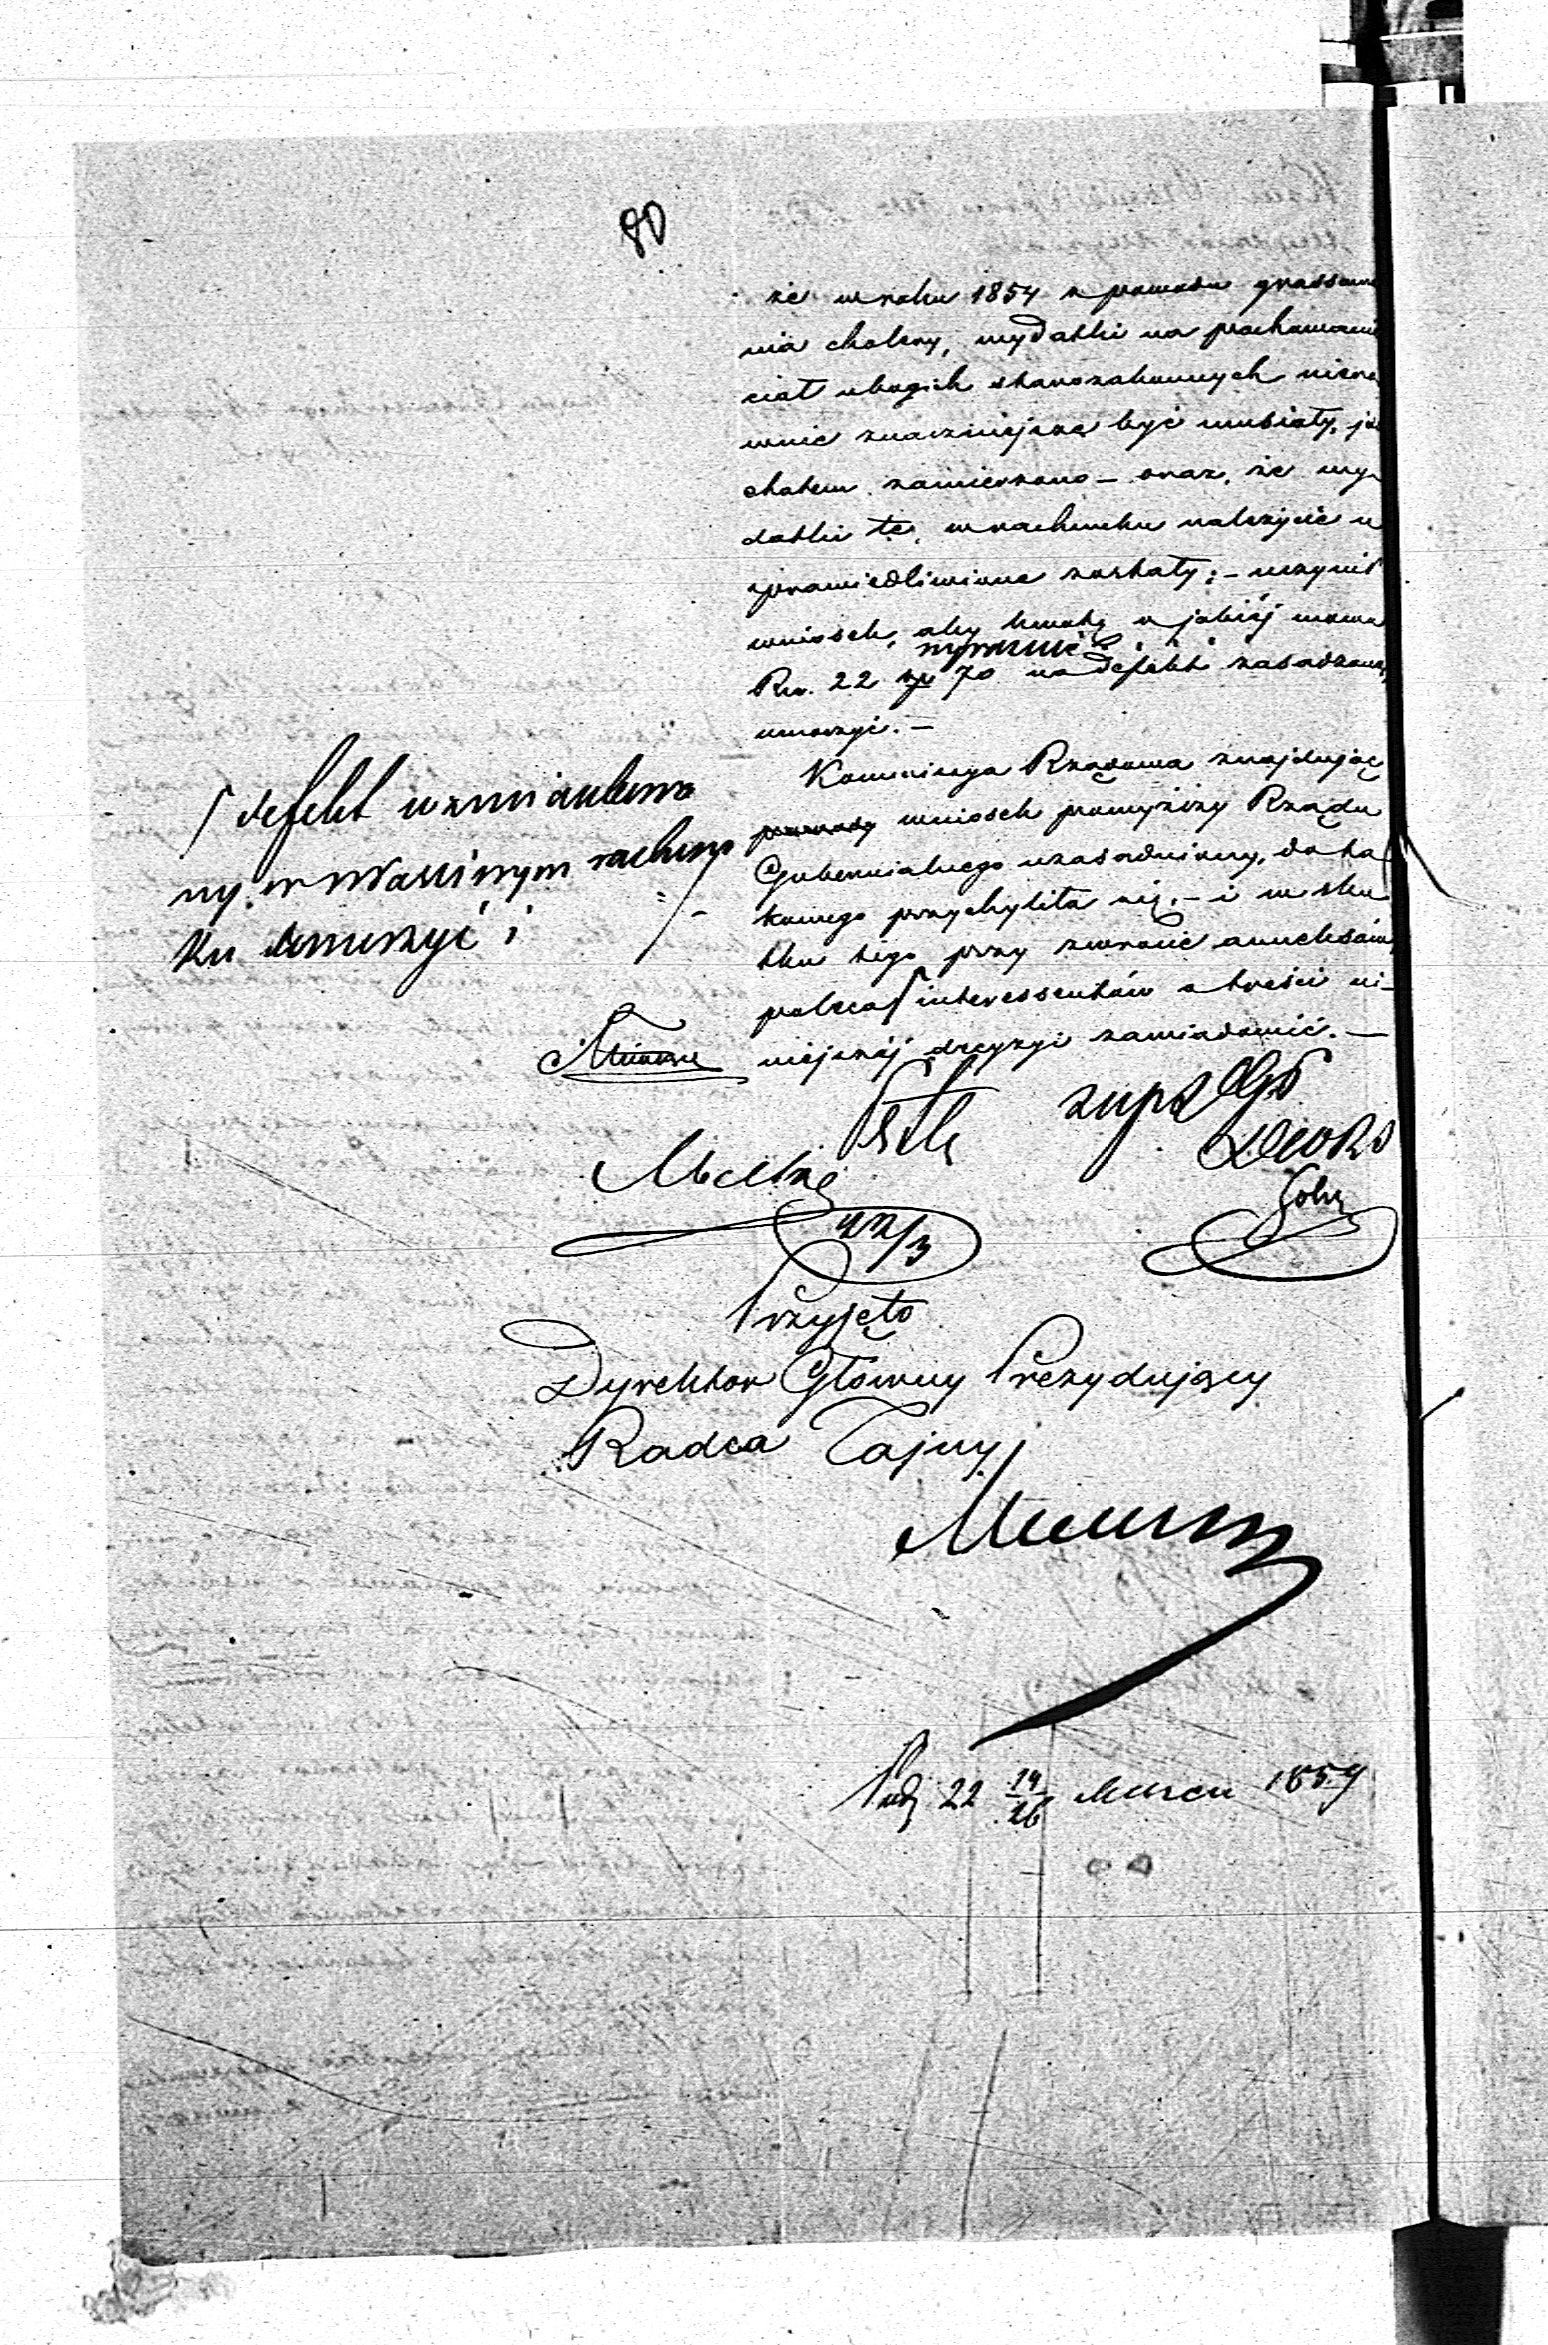 80
że w roku 1854 z powodu grassowa
nia cholery, wydatki na pochowanie
ciał ubogich starozakonnych nieró
wnie znaczniejsze być musiały, ja
zamierzono – oraz, że wy
datki te, w rachunku należycie u
sprawiedliwione zostały; – uczynił
wniosek, aby kwotę o jakiéj mowa
Rs. 22 kp 70 na defekt zasadzoną
umorzyć. –
Kommissya Rządowa znajdując
wniosek powyższy Rządu
Gubernialnego uzasadniony, do ta
kowego przychyliła się. – i w sku
tku tego przy zwrocie annexów
poleca ⌈ interessentów o treści ni-
niejszéj decyzyi zawiadomić. –
⌈ defekt wzmiankowa
ny w właściwym rachun
ku umorzyć i
22/3
Przyjęto
Dyrektor Główny Prezydujący
Radca Tajny
22 14/26 Marca 1859